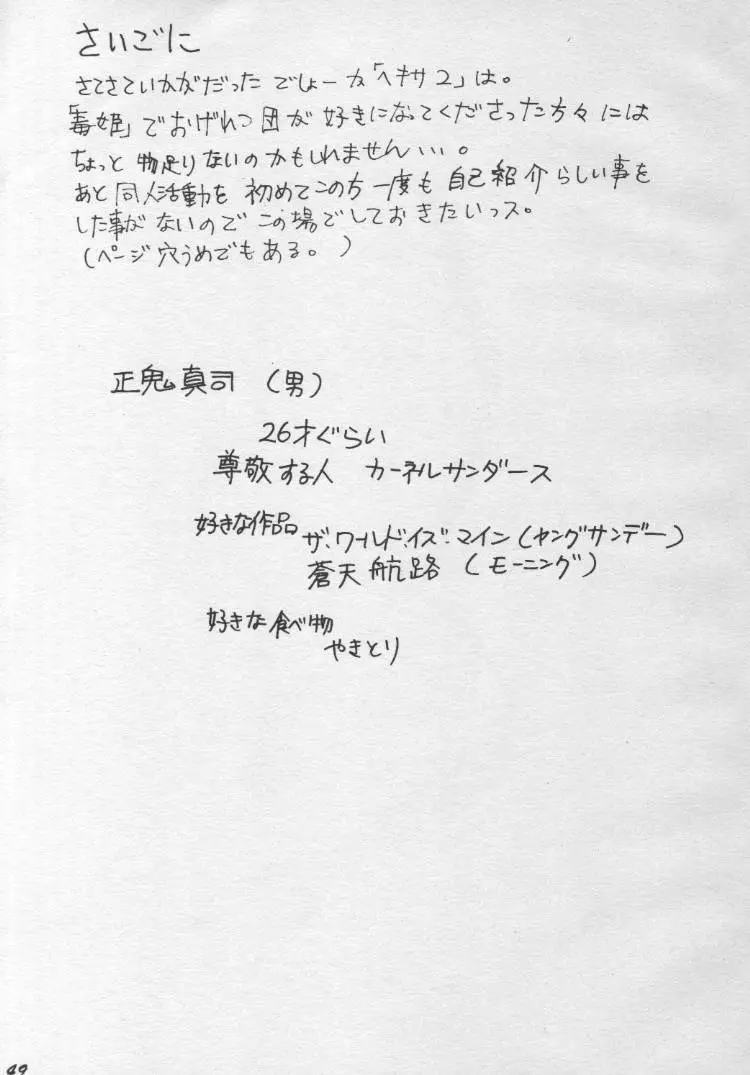 さいごに
さてさていかがだった でしょーか「ヘキサ2」は。
「毒姫」でおげれつ団が 好きになってくださった方々には
ちょっと 物足りないのかもしれません…。
あと 同人活動を 初めてこの方 一度も 自己紹介らしい事を
した事が ないので この場でしておきたいっス。
(ページ穴うめでもある。)
正鬼真司 (男)
26才ぐらい
尊敬する人 カーネルサンダース
好きな作品 ザ・ワールド・イズ・マイン(ヤングサンデー)
蒼天航路 (モーニング)
好きな食べ物
やきとり
49